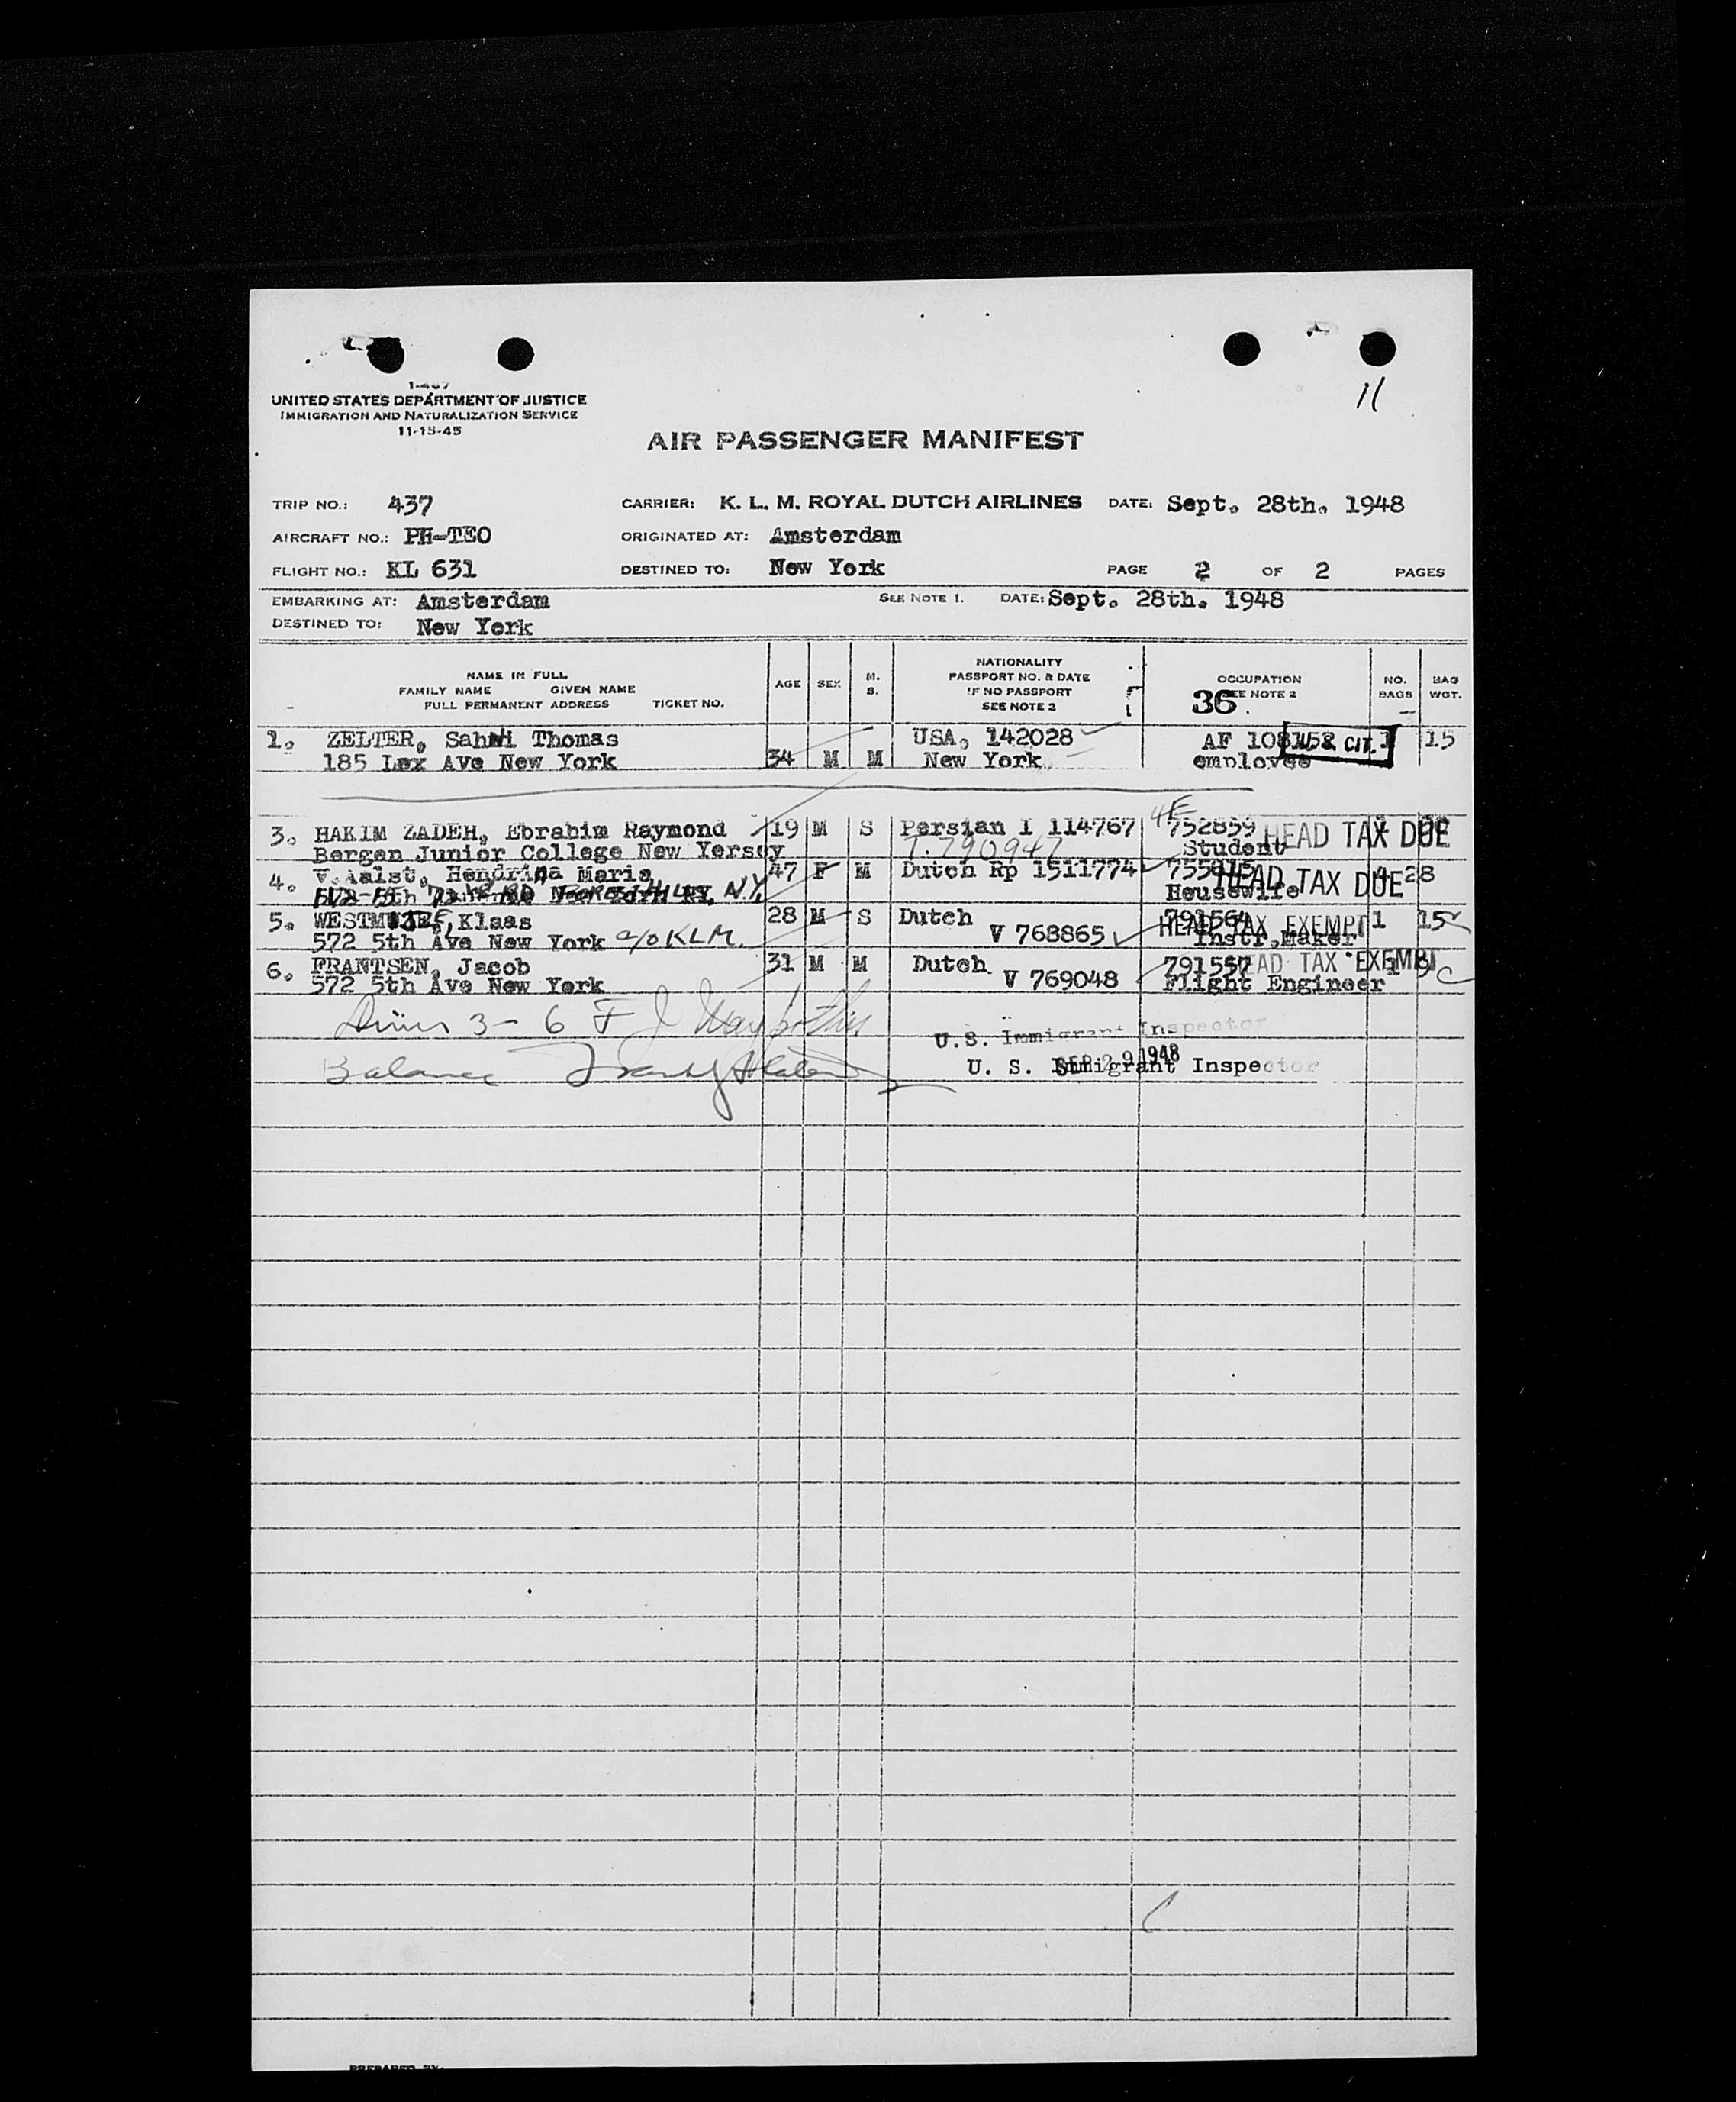 11
UNITED STATES DEPARTMENT OF JUSTICE
IMMIGRATION AND NATURALIZATION SERVICE
11-15-45
AIR PASSENGER MANIFEST
TRIP NO.: 437 CARRIER: K. L. M. ROYAL DUTCH AIRLINES DATE: Sept. 28th. 1948
AIRCRAFT NO.: PH-TEO ORIGINATED AT: Amsterdam
FLIGHT NO.: KL 631 DESTINED TO: New York PAGE 2 OF 2 PAGES
EMBARKING AT: Amsterdam SEE NOTE 1. DATE: Sept. 28th. 1948
DESTINED TO: New York
NAME IN FULL
FAMILY NAME GIVEN NAME
FULL PERMANENT ADDRESS TICKET NO.
AGE SEX M. S.
NATIONALITY
PASSPORT NO. & DATE
IF NO PASSPORT
SEE NOTE 2
OCCUPATION
SEE NOTE 2
36
NO. BAGS
BAG WGT.
1. ZELTER, Thomas USA, 142028 AF U.S. CIT. 1 15
185 Lex Ave New York 34 M M New York employee
3. HAKIM ZADEH, Ebrahim Raymond 19 M S Persian I 114767 4E 752859 HEAD TAX DUE
Bergen Junior College New Yersey T. 790947 Student
4. v.Aalst, Hendrina Maria 47 F M Dutch Rp 1511774 HEAD TAX DUE 28
FOREST HILLS, N.Y. Housewife
5. Klaas 28 M S Dutch 791564 HEAD TAX EXEMPT 1 15
572 5th Ave New York c/o KLM. V 768865 Instr.Maker
6. FRANTSEN, Jacob 31 M M Dutch 791557 HEAD TAX EXEMPT 1 9 C
572 5th Ave New York V 769048 Flight Engineer
3 - 6
U.S. Immigrant Inspector
Balance
SEP 29 1948
U. S. Immigrant Inspector
PREPARED BY: